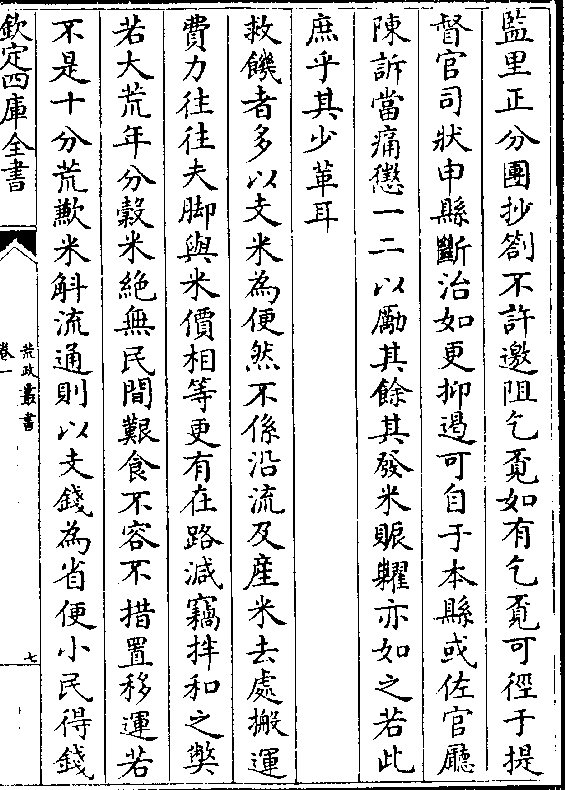 監里正分團抄劄不許邀阻乞覔如有乞覔可徑于提
督官司狀申縣斷治如更抑遏可自于本縣或佐官廳
陳訴當痛懲一二以勵其餘其發米賑糶亦如之若此
庶乎其少革耳
救饑者多以支米為便然不係沿流及産米去處搬運
費力往往夫脚與米價相等更有在路減竊拌和之獘
若大荒年分穀米絶無民間艱食不容不措置移運若
不是十分荒歉米斛流通則以支錢為省便小民得錢
欽定四庫全書
荒政叢書
卷一
七